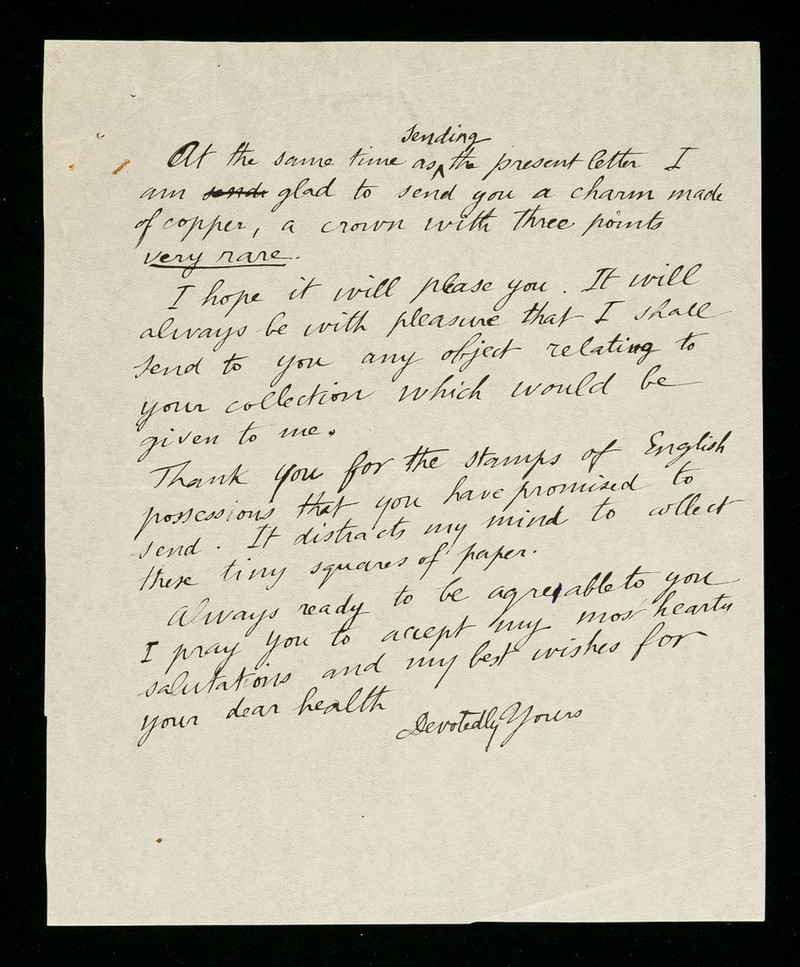 sending
At the same time as the present letter I
am sends glad to send you a charm made
of copper, a crown with three points
very rare.
I hope it will please you. It will
always be with pleasure that I shall
send to you any object relating to
your collection which would be
given to me.
Thank you for the stamps of English
possessions that you have promised to
send. It distracts my mind to collect
these tiny squares of paper.
Always ready to be agreeable to you
I pray you to accept my most hearty
salutations and my best wishes for
your dear health
Devotedly Yours